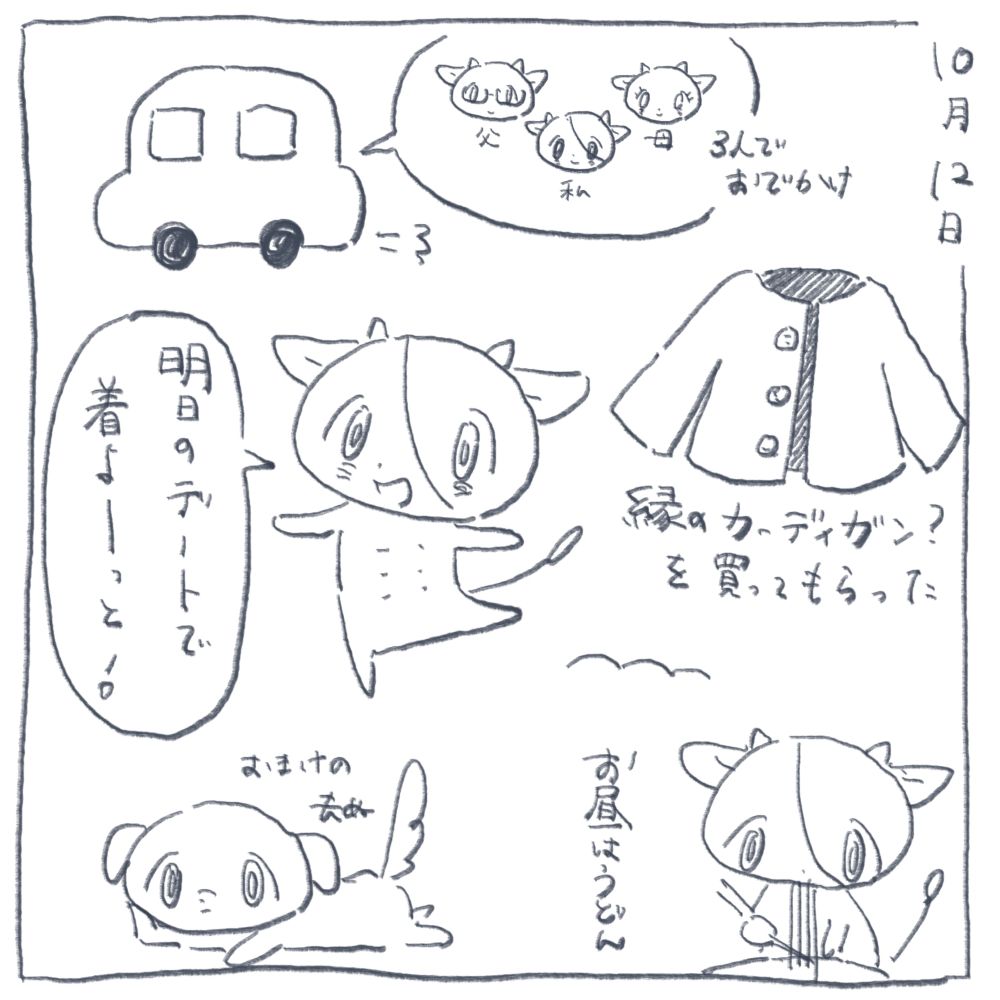 10月12日
父
母
私
3人で
おでかけ
縁のカーディガン?
を買ってもらった
明日のデートで
着よーっと!
お昼はうどん
おまけの